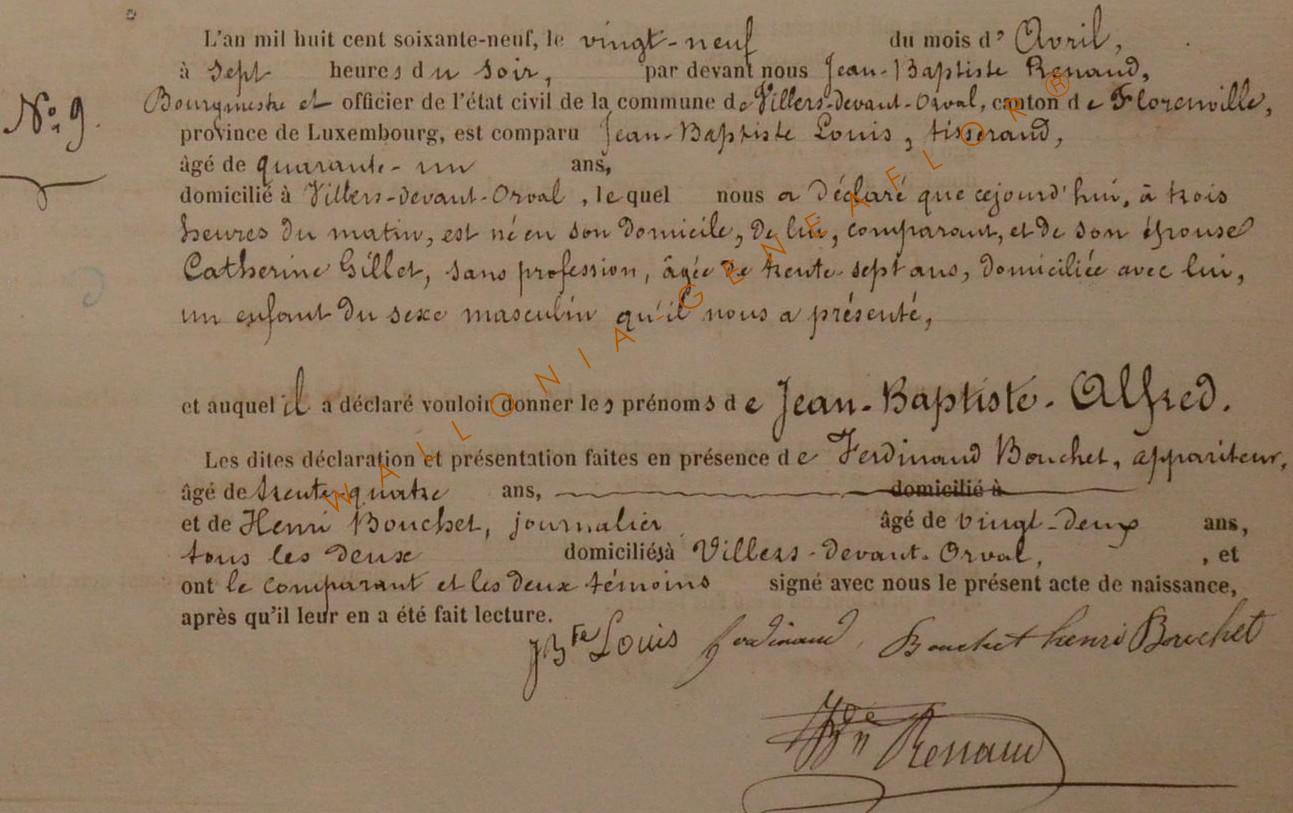 L'an mil huit cent soixante-neuf, le vingt-neuf du mois d'Avril,
à sept heures du soir, par devant nous Jean-Baptiste Renaud,
N° 9. Bourgmestre et officier de l'état civil de la commune de Villers-devant-Orval, canton de Florenville,
province de Luxembourg, est comparu Jean-Baptiste Louis, tisserand,
âgé de quarante-un ans,
domicilié à Villers-devant-Orval, lequel nous a déclaré que cejourd'hui, à trois
heures du matin, est né en son domicile, de lui, comparant, et de son épouse
Catherine Gillet, sans profession, âgée de trente-sept ans, domiciliée avec lui,
un enfant du sexe masculin qu'il nous a présenté,
et auquel il a déclaré vouloir donner les prénoms de Jean-Baptiste-Alfred.
Les dites déclaration et présentation faites en présence de Ferdinand Bouchet, appariteur,
âgé de trente-quatre ans, domicilié à
et de Henri Bouchet, journalier âgé de vingt-deux ans,
tous les deux domiciliés à Villers-devant-Orval, , et
ont le comparant et les deux témoins signé avec nous le présent acte de naissance,
après qu'il leur en a été fait lecture.
JBte Louis ferdinand Bouchet henri Bouchet
Renaud
WALLONIA-GENEAFLOR®